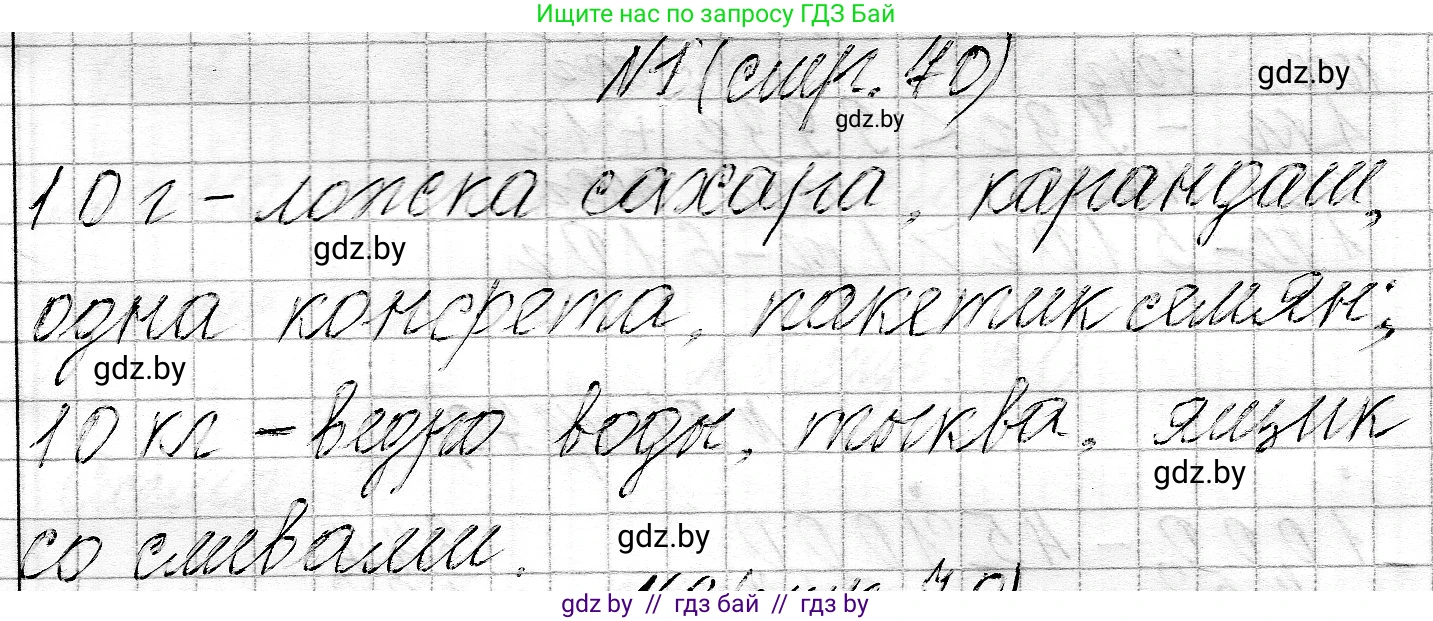 Ищите нас по запросу ГДЗ Бай
№1 (стр. 70)
gdz.by
gdz.by
10 г - ложка сахара, карандаш,
gdz.by
одна конфета, пакетик семян;
gdz.by
10 кг - ведро воды, тыква, ящик
gdz.by
со сливами.
gdz.by
№2 (стр. 70)
gdz by // гдз бай // гдз by